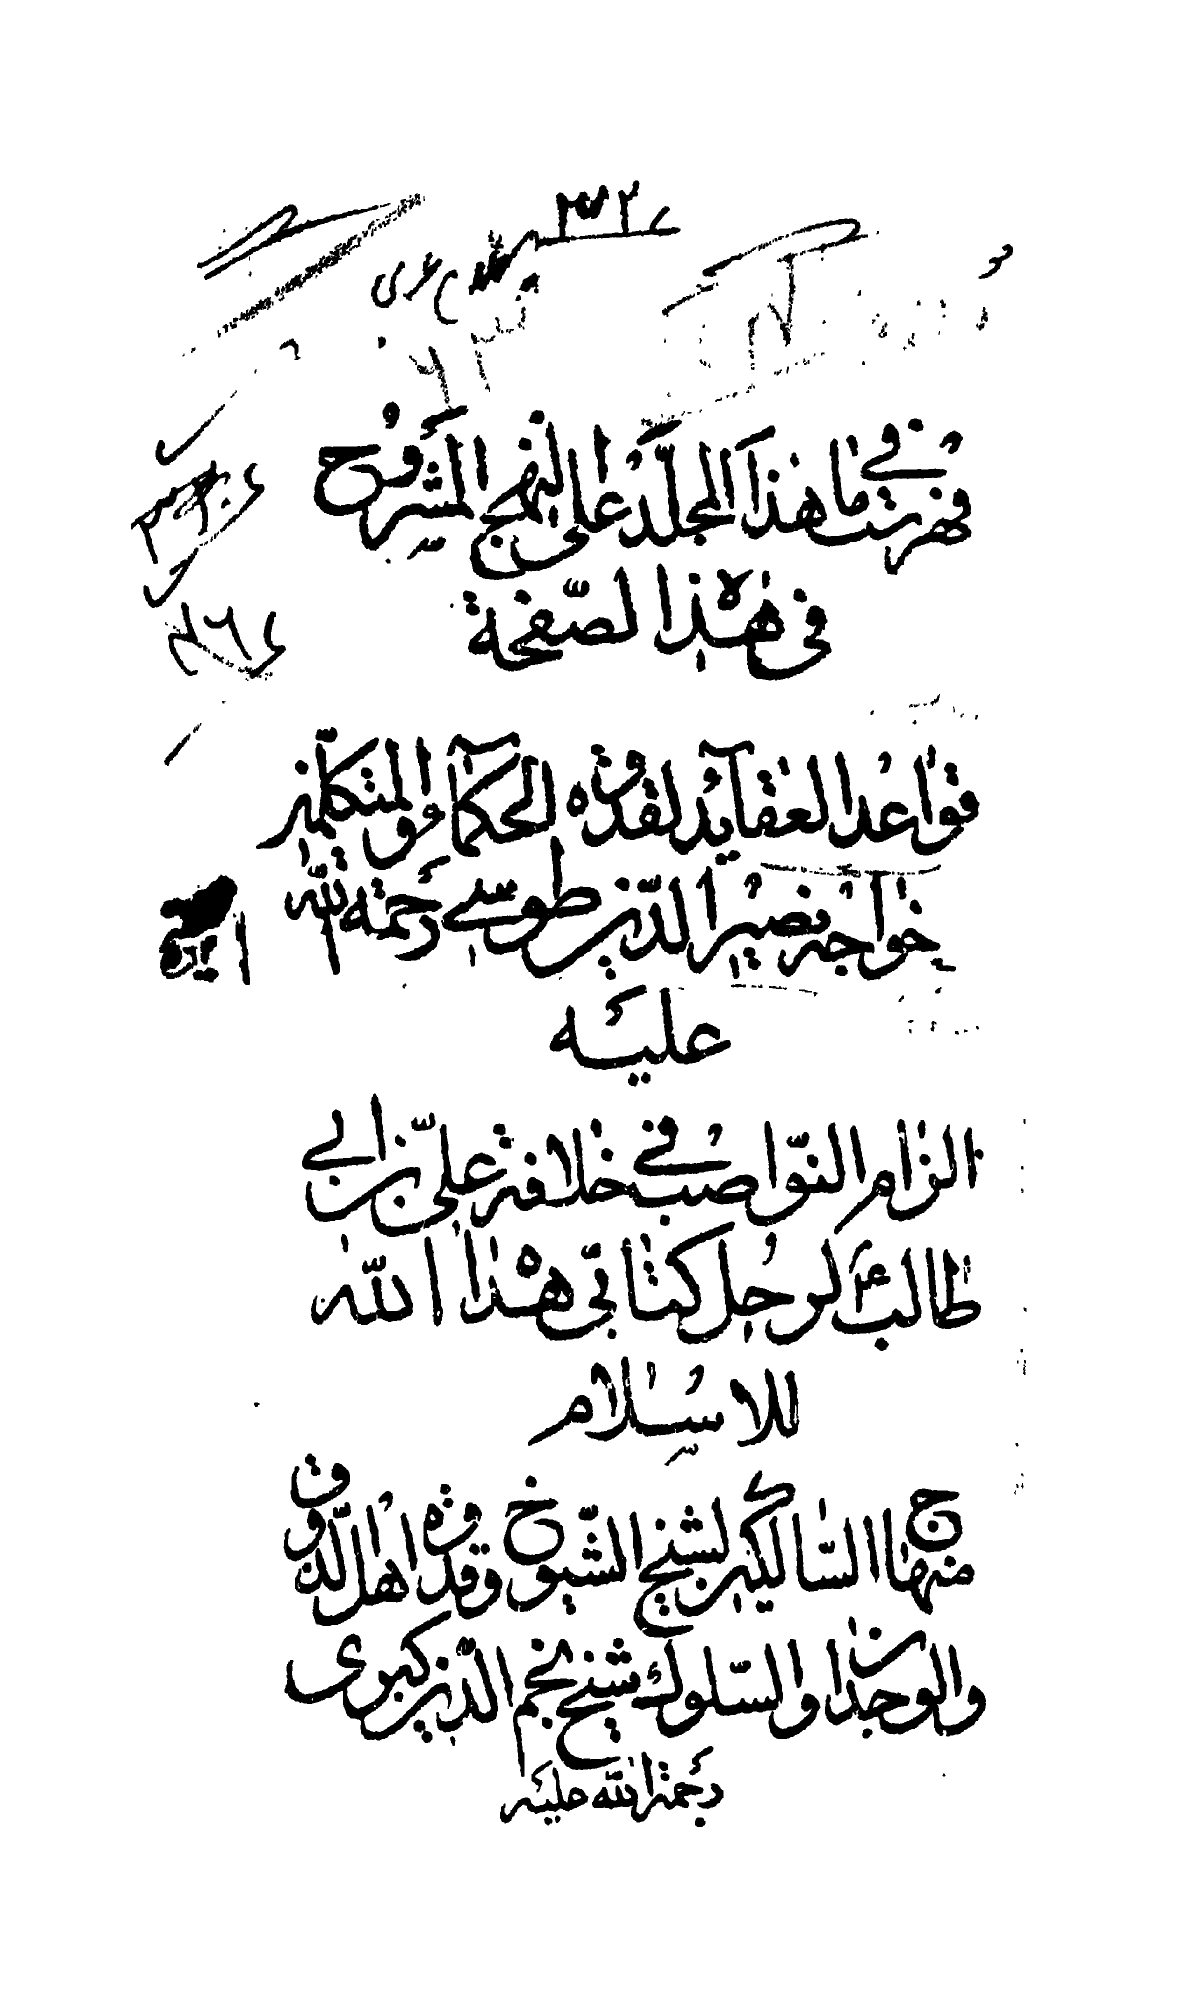 فهرست ما في هذا المجلد على النهج المشروح
في هذا الصفحة
قواعد العقائد لقدوة الحكماء و المتكلمين
خواجه نصير الدين طوسي رحمة الله
عليه
الزام النواصب في خلافة علي بن ابي
طالب ع لرجل كتابي هداه الله
للاسلام
منهاج السالكين لشيخ الشيوخ وقدوة اهل الذوق
والوجدان والسلوك شيخ نجم الدين كبرى
رحمة الله عليه